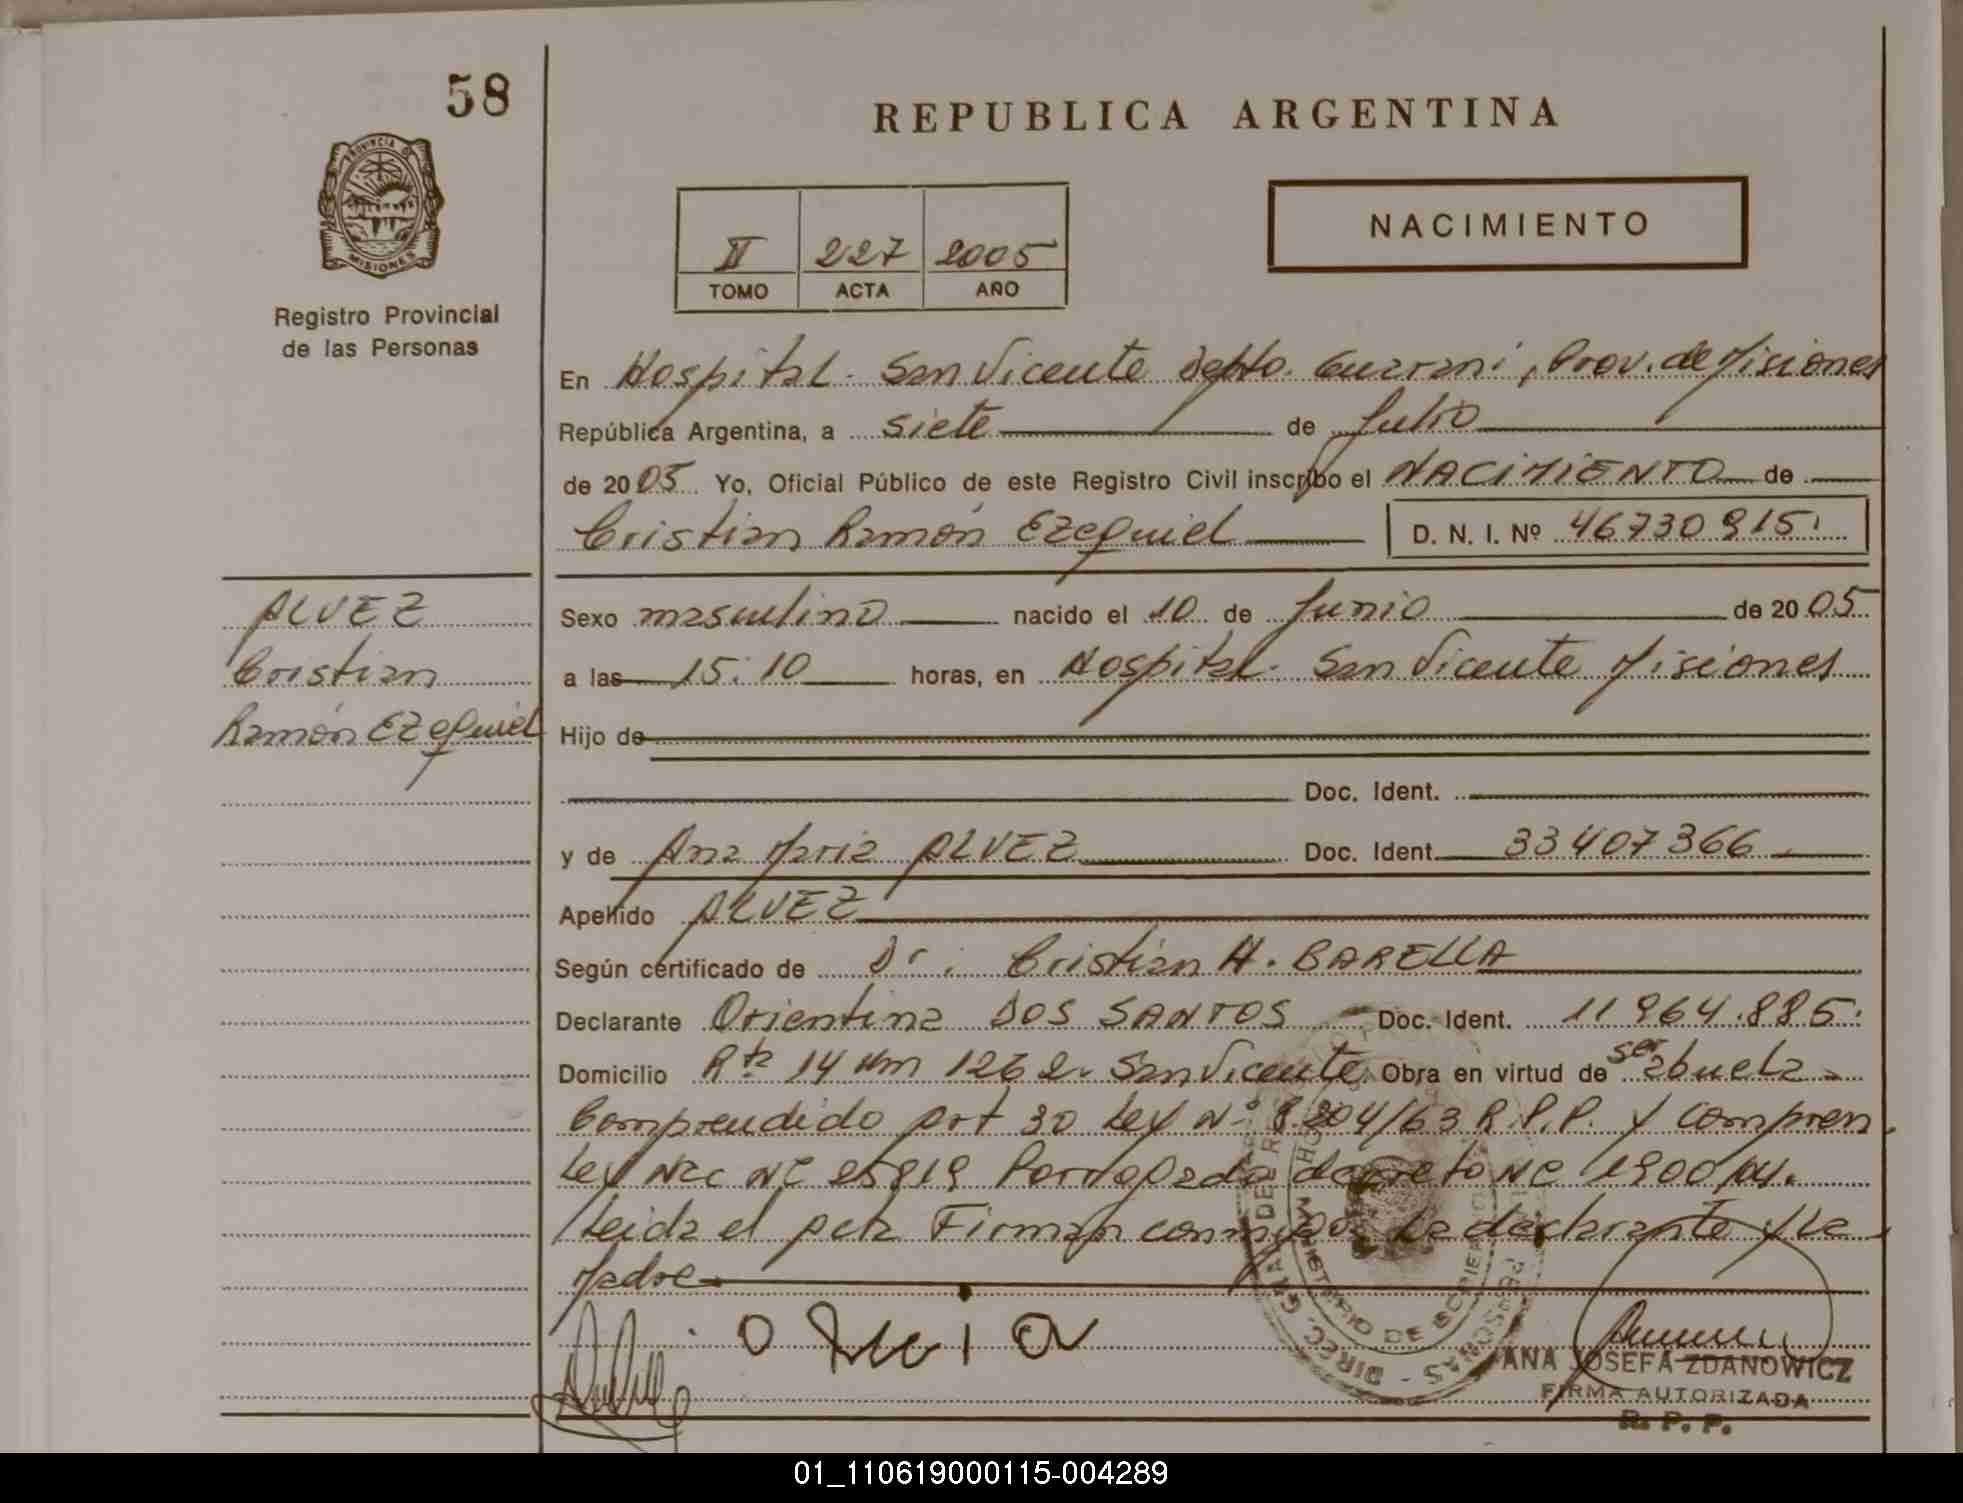 58
REPUBLICA ARGENTINA
PROVINCIA DE
MISIONES
Registro Provincial
de las Personas
NACIMIENTO
II 227 2005
TOMO ACTA AÑO
En Hospital. San Vicente Depto. Guarani, Prov. de Misiones
República Argentina, a siete de Julio
de 2005 Yo, Oficial Público de este Registro Civil inscribo el NACIMIENTO de
Cristian Ramón Ezequiel D. N. I. Nº 46730915
ALVEZ
Cristian
Ramón Ezequiel
Sexo masculino nacido el 10 de Junio de 2005
a las 15:10 horas, en Hospital. San Vicente Misiones
Hijo de
Doc. Ident.
y de Ana Maria ALVEZ Doc. Ident. 33407366
Apellido ALVEZ
Según certificado de Dr. Cristian H. BARELLA
Declarante Orientina DOS SANTOS Doc. Ident. 11964.885.
Domicilio Rta 14 Km 1262. San Vicente. Obra en virtud de ser abuela
Comprendido Art 30 Ley Nº 8.204/63 R.P.P. y Compren
Ley Nac Nº 25819 decreto Nº 1900
Leida el Acta Firman conmigo La declarante y La
Madre
ANA JOSEFA ZDANOWICZ
FIRMA AUTORIZADA
R. P. P.
01_110619000115-004289